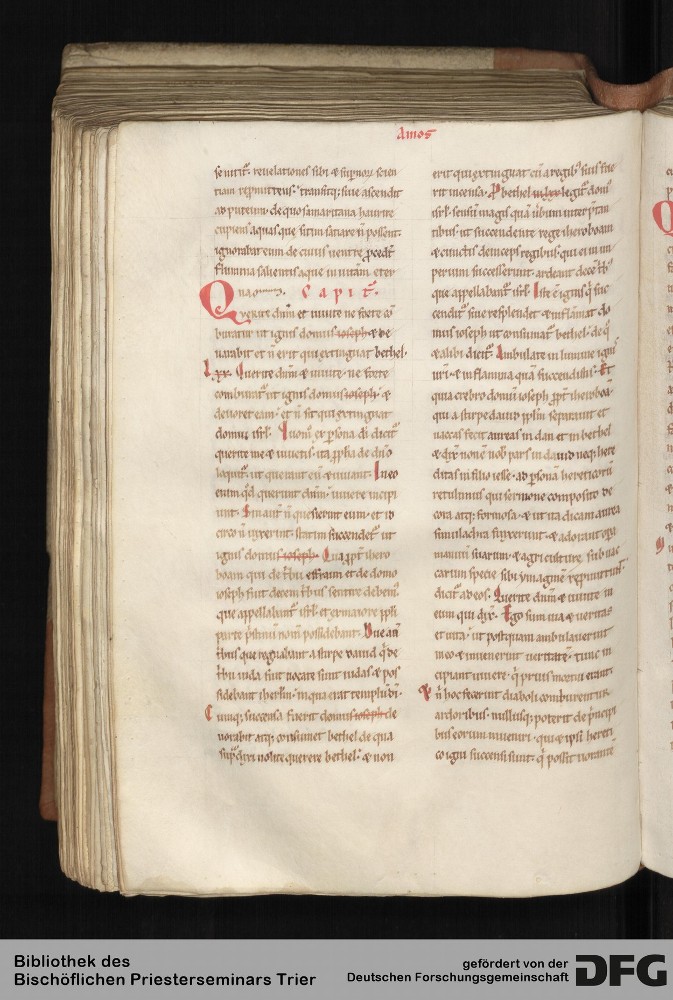 Amos
se uitit᷑. reuelationes sibi & sup̱nor̃ scien
tiam rep̱mittens. transitq; siue ascendit
ad puteum. de quo samaritana haurire
cupiens aquas que sitim satiare n̄ possent.
ignorabat eum de cuius uentre ꝓcedt᷑
flumina salientis aque in uitam eter
nam. Capit᷑.
Querite dn̄m et uiuite ne forte cō
buratur ut ignis domus ioseph & de
uorabit et n̄ erit qui extinguat bethel.
Lxx. Querite dn̄m & uiuite. ne forte
comburat᷑ ut ignis domus ioseph. &
deuoret eam. et n̄ sit qui extinguat
domui isrl. Quom̄ ex p̱sona dī dicit᷑
querite me & uiuetis. ita ꝓpha de dn̄o
loquit᷑. ut querant eū & uiuant. In eo
enim q̇d querunt dn̄m. uiuere incipi
unt. Si aut̄ n̄ quesierint eum. et id
circo n̄ uixerint. statim succendet᷑ ut
ignis domus ioseph. Qua ꝓpt̄ ihero
boam qui de t̄bu effraim et de domo
ioseph fuit decem t̄bus sentire debem᷒.
que appellabant᷑ isrl. et ex maiore ppli
parte p̄stinū nom̄ possidebant. Due aū
t̄bus que regnabant a stirpe dauid q̇ de
t̄bu iuda fuit uocate sunt iudas. & pos
sidebant ihrlm̄. in qua erat templū dī.
Cumq; succensa fuerit domus ioseph de
uorabit atq; consumet bethel de qua
sup̱ dixi nolite querere bethel. & non
erit qui extinguat cū a regib᷒ suis fue
rit incensa. P bethel in lxx legit᷑ domī
isrl. sensū magis quā ūbum interp̄tan
tibus. ut succendente rege iheroboam
& cunctis deinceps regibus qui ei in im
perium successerunt. ardeant decē t̄b᷒
que appellabant᷑ isrl. Iste ē ignis q̇ suc
cendit᷑ siue resplendet & inflāmat do
mus ioseph ut consumat᷑ bethel. de q̊
& alibi dicit᷑. Ambulate in lumine ignis
uri. & in flamma quā succendistis. Et
quia crebro domū ioseph ꝓpt̄ iheroboā
qui a stirpe dauid pplm̄ separauit et
uaccas fecit aureas in dan et in bethel
& dix̄ nonē nob̄ pars in dauid neq; here
ditas in filio iesse. ad p̱sonā hereticorū
retulimus qui sermone composito de
cora atq; formosa. & ut ita dicam aurea
simulachra finxerunt. & adorant opa
manuū suarum. & agriculture sub uac
carum specie sibi ymaginē rep̱mittunt.
dicit᷑ ad eos. Querite dn̄m & uiuite in
eum qui dix̄. Ego sum uia & ueritas
et uita. ut postquam ambulauerint
in eo & inuenerint ueritatē. tunc in
cipiant uiuere. q̇ prius mortui erant.
& n̄ hoc fecerint diaboli comburentur
ardoribus. nullusq; poterit de p̄ncipi
bus eorum inueniri. qui & ipsi hereti
co igni succensi sunt. q̇ possit uorante
Bibliothek des
Bischöflichen Priesterseminars Trier
gefördert von der
Deutschen Forschungsgemeinschaft
DFG